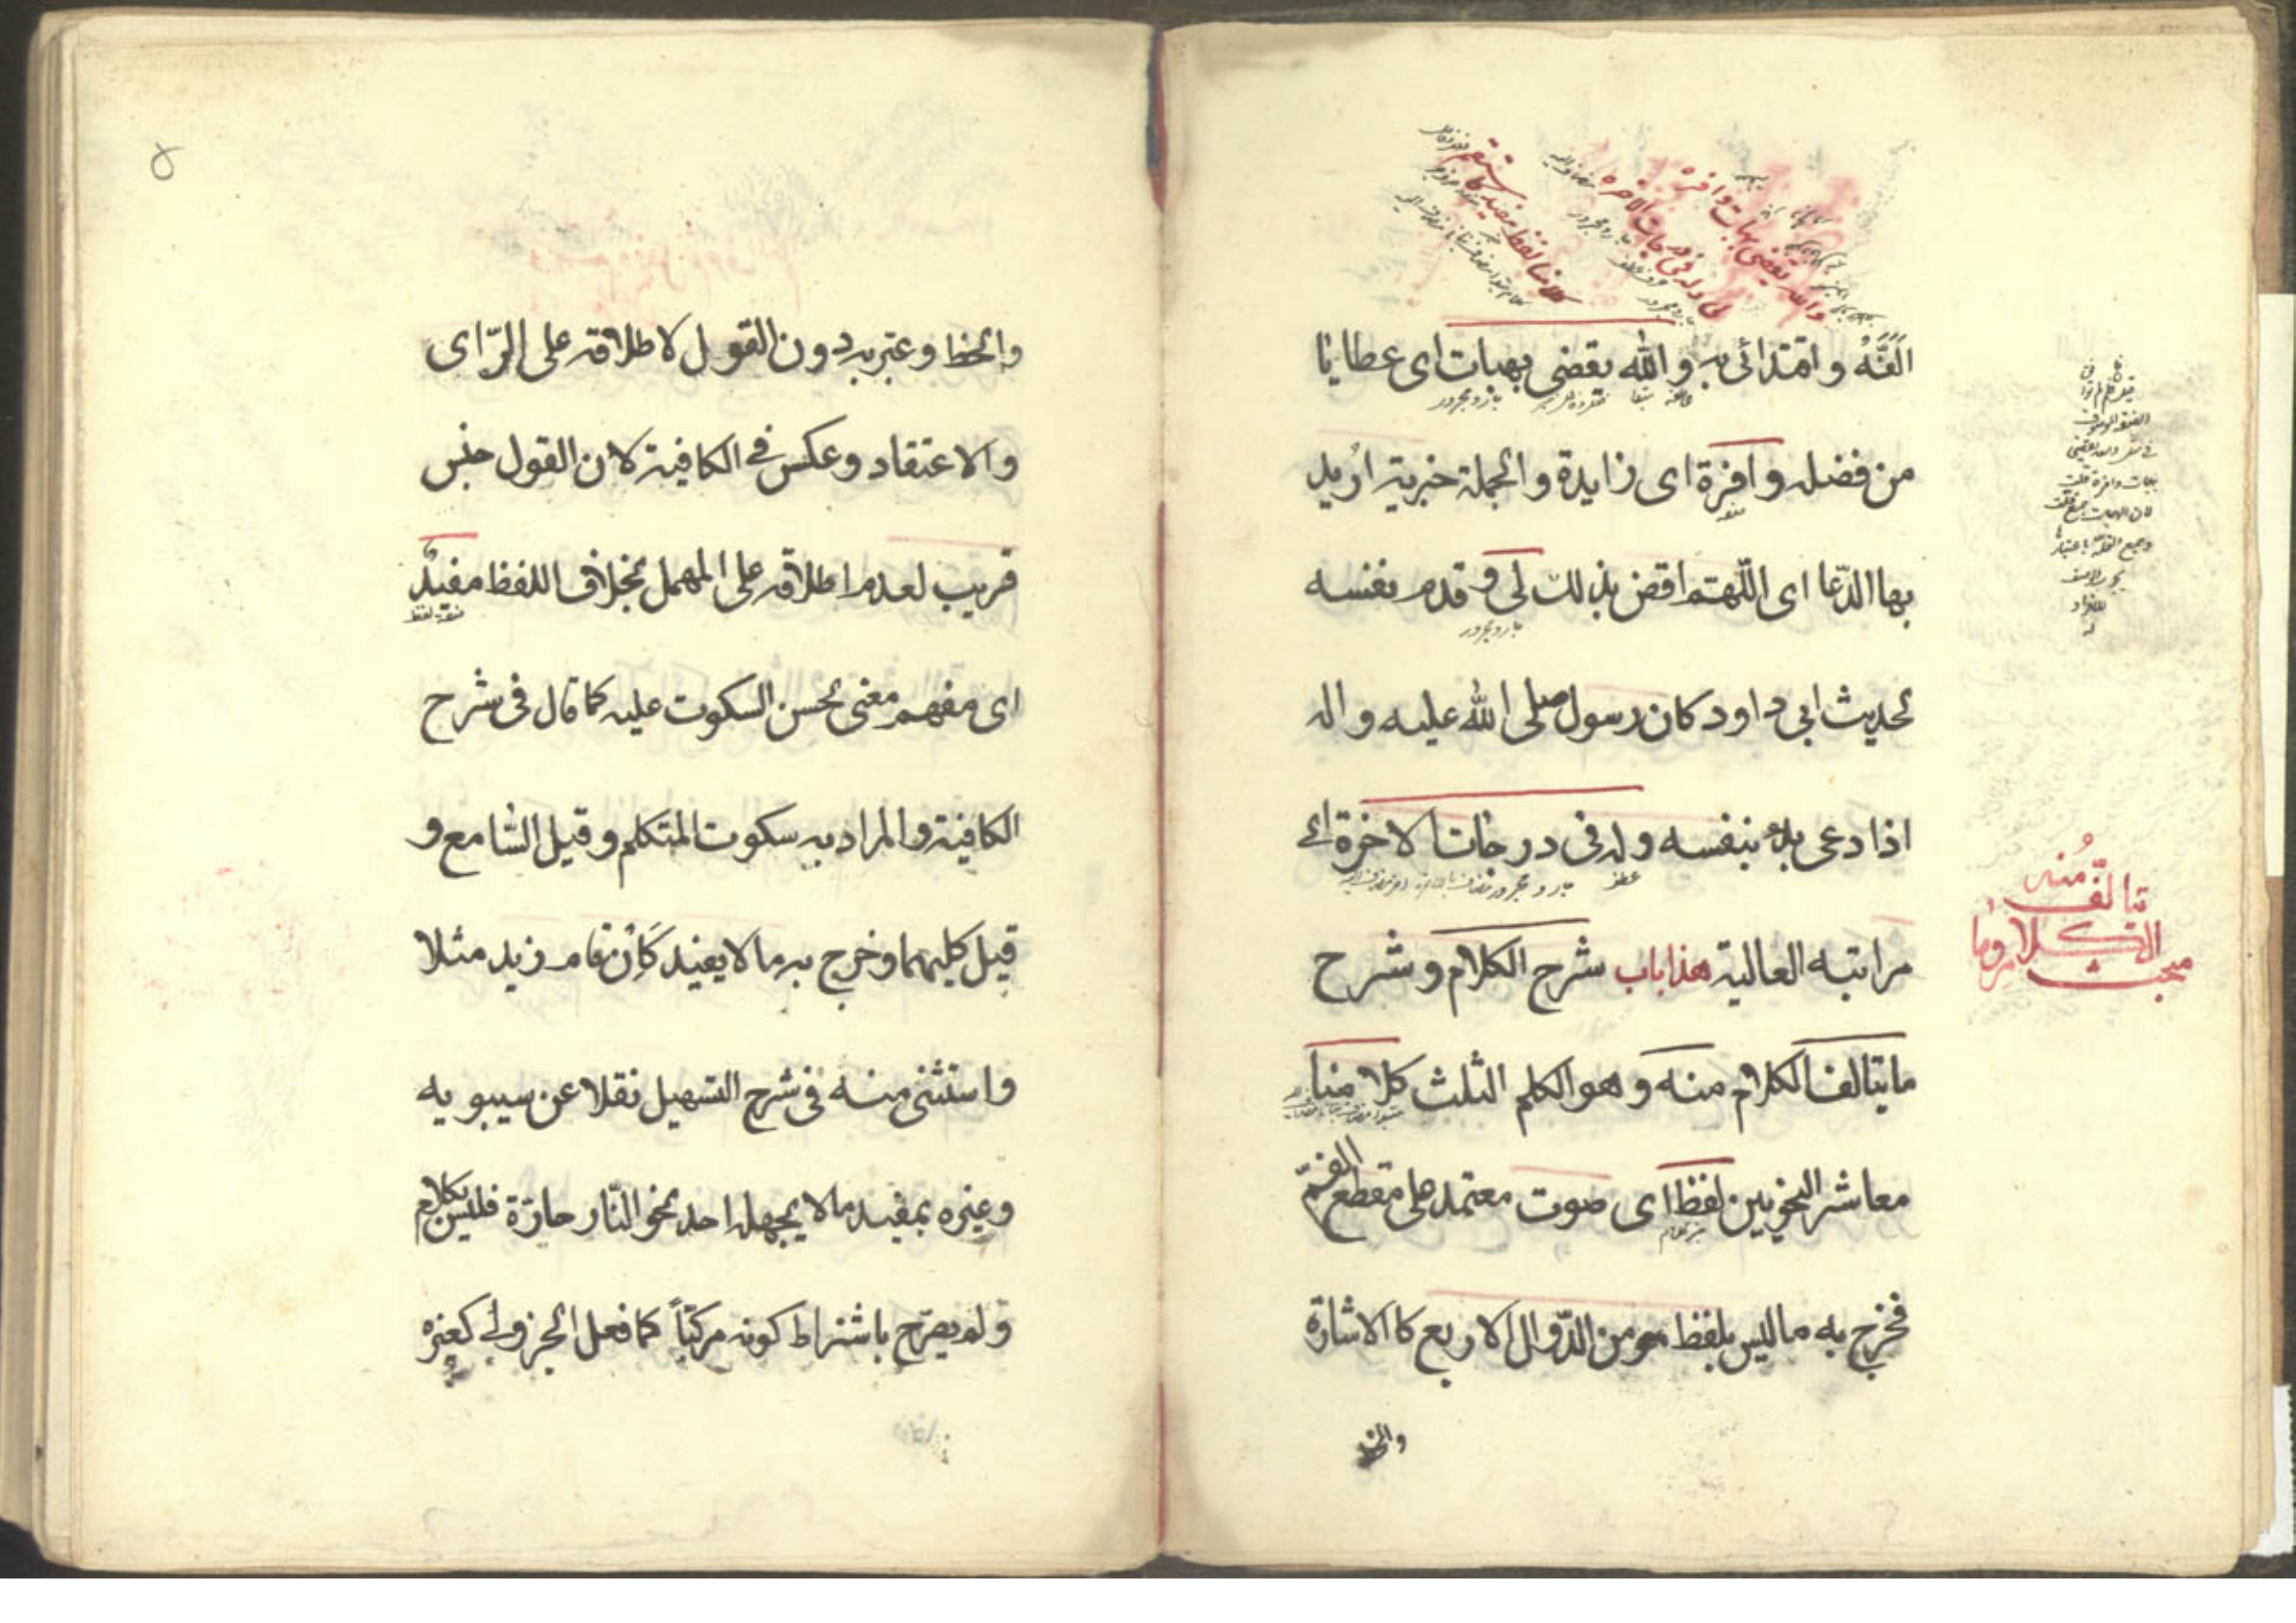 والله يقضى بهبات وافرة
لى وله فى درجات الاخرة
كلامنا لفظ مفيد كاستقم
الفته واقتدائى به والله يقضى بهبات اى عطايا
جار ومجرور
من فضله وافرة اى زايدة والجملة خبرية اريد
بها الدعا اى اللهم اقض بذلك لى و قدم نفسه
جار ومجرور
لحديث ابى داود كان رسول صلى الله عليه واله
اذا دعى بدء بنفسه وله فى درجات الاخرة اى
عطف جار و مجرور
مراتبه العالية هذا باب شرح الكلام و شرح
ما يتالف الكلام منه وهو الكلم الثلث كلامنا
معاشر النحويين لفظ اى صوت معتمد على مقطع الفم
خبر كلام
فخرج به ما ليس بلفظ هو من الدوال الاربع كالاشارة
والخط
مبحث الكلام وما
يتالف منه
۵
والخط وعبّر به دون القول لاطلاقه على الرّاى
والاعتقاد وعكس فى الكافية لان القول جنس
قريب لعدم اطلاقه على المهمل بخلاف اللفظ مفيد
صفة لفظ
اى مفهم معنى يحسن السكوت عليه كما قال فى شرح
الكافية والمراد به سكوت المتكلم وقيل السّامع و
قيل كليهما وخرج به ما لا يفيد كَاِن قام زيد مثلا
واستثنى منه فى شرح التسهيل نقلا عن سيبويه
وغيره بمفيد ما لا يجهله احد نحو النّار حارّة فليس بكلام
و لم يصرّح باشتراط كونه مركّباً كما فعل الجزولى كغيره